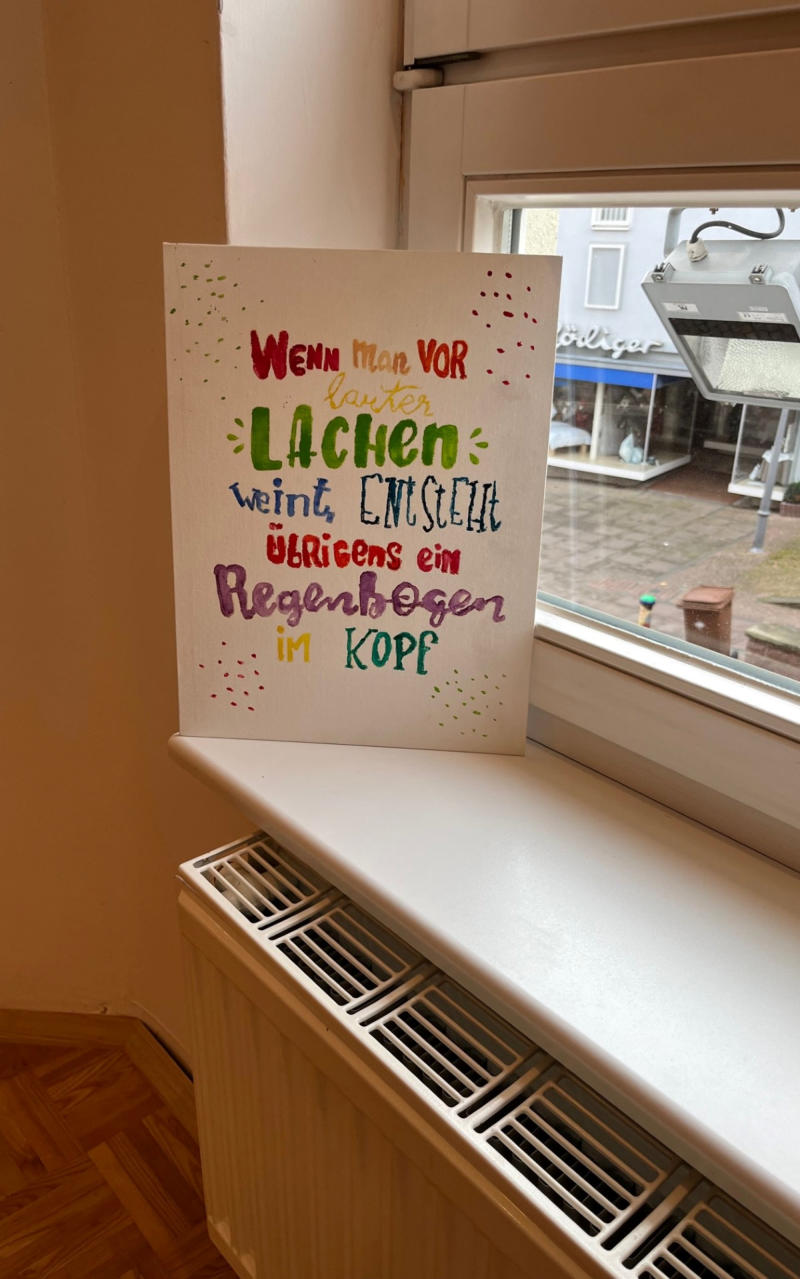 WENN man VOR
lauter
LACHEN
weint, ENTSTEHT
ÜBRIGENS EIN
Regenbogen
im KOPF
ödiger